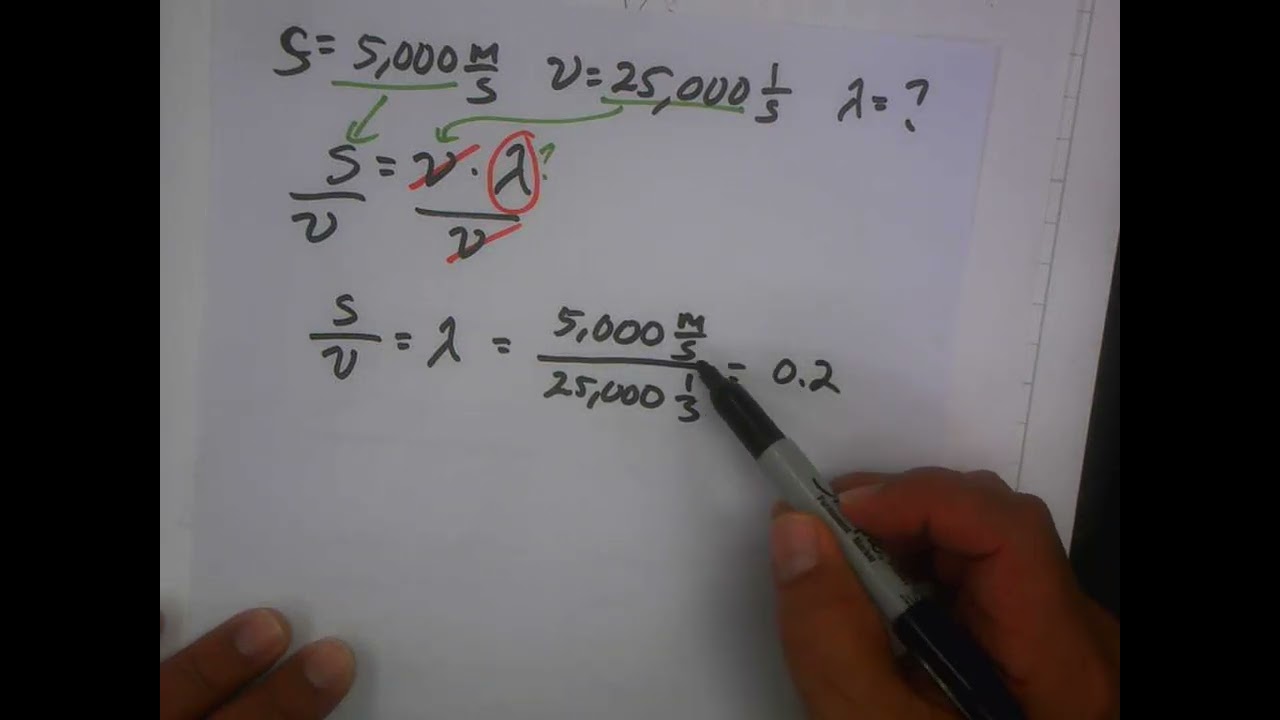 S = 5,000 M/S ν = 25,000 1/S λ = ?
S/ν = ν · λ/ν ?
S/ν = λ = 5,000 M/S / 25,000 1/S = 0.2